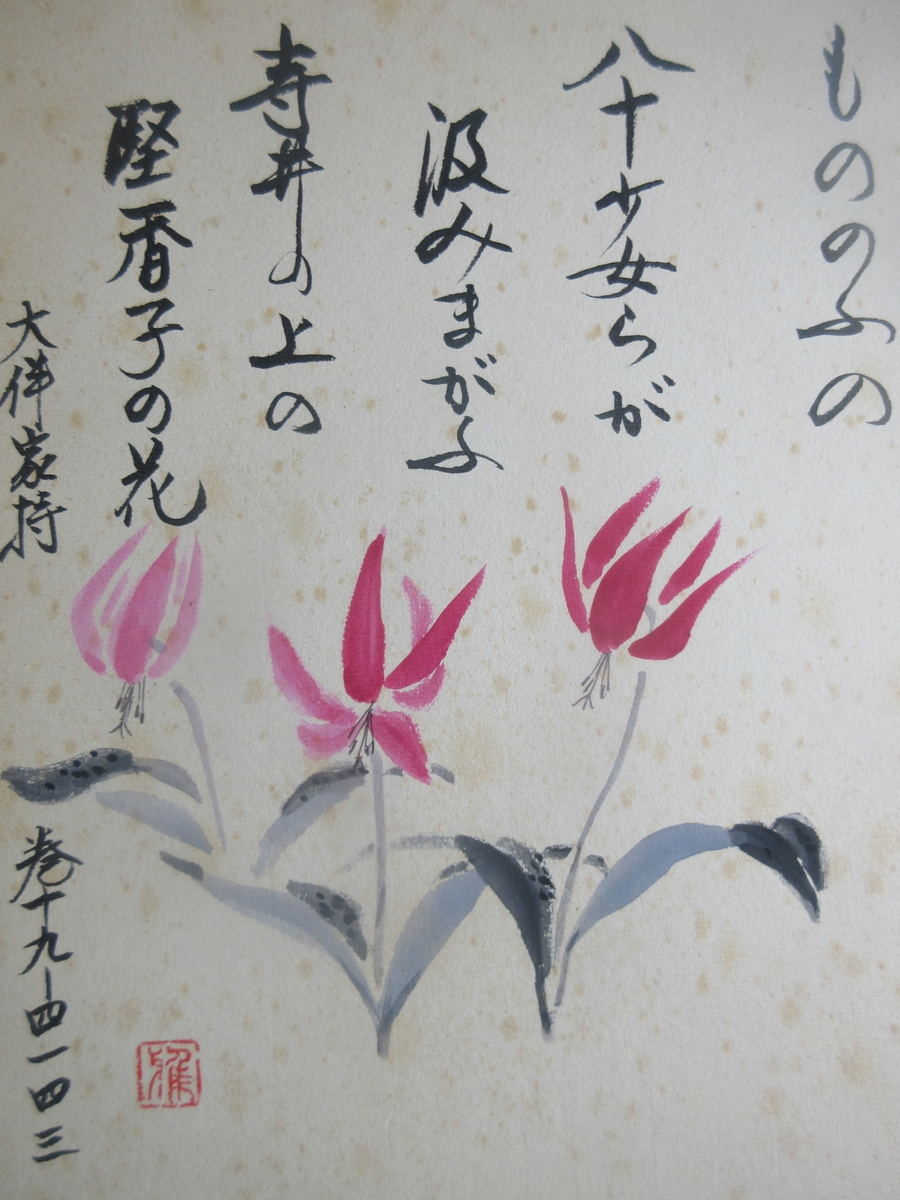 もののふの
八十少女らが
汲みまがふ
寺井の上の
堅香子の花
大伴家持
巻十九-四一四三
雅